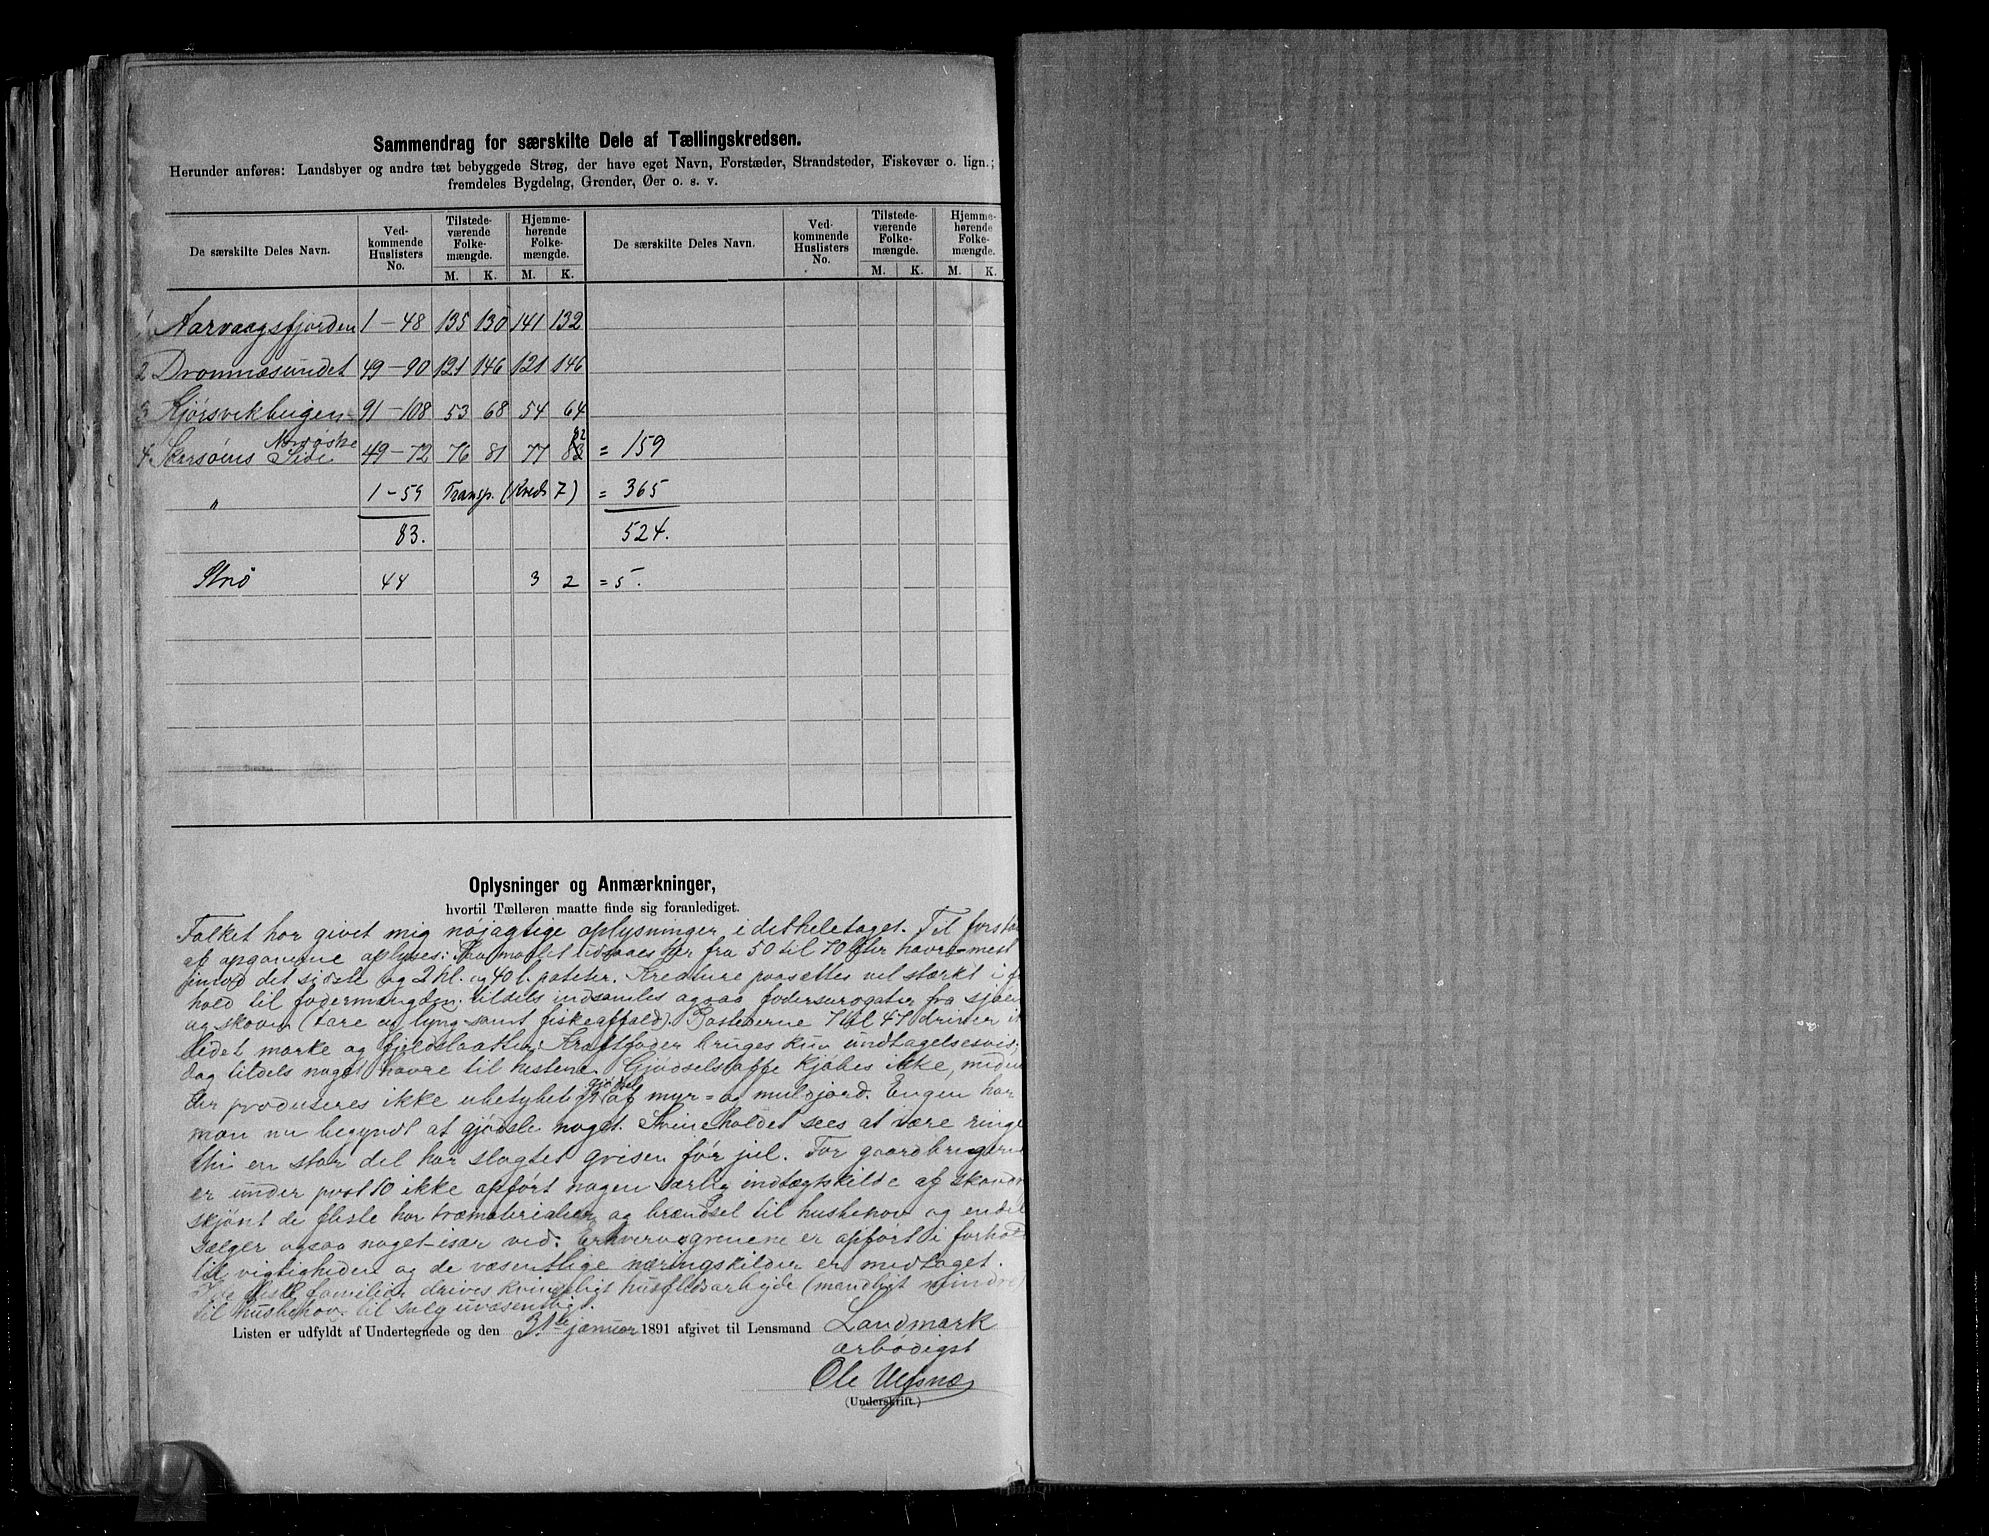 Sammendrag for særskilte Dele af Tællingskredsen.
Herunder anføres: Landsbyer og andre tæt bebyggede Strøg, der have eget Navn, Forstæder, Strandsteder, Fiskevær o. lign.;
fremdeles Bygdelag, Grender, Øer o. s. v.
De særskilte Deles Navn. Vedkommende Huslisters No. Tilstedeværende Folkemængde. M. K. Hjemmehørende Folkemængde. M. K. De særskilte Deles Navn. Vedkommende Huslisters No. Tilstedeværende Folkemængde. M. K. Hjemmehørende Folkemængde. M. K.
1 Aarvaagsfjorden 1-48 135 130 141 132
2 Dromnæsundet 49-90 121 146 121 146
3 Kjörsvikbugen 91-108 53 68 54 64
4 Skarsöens Nordöstre Side 49-72 76 81 77 82 = 159
" 1-59 Transp. (Kreds 7) = 365
83. 524.
Strö 44 3 2 = 5.
Oplysninger og Anmærkninger,
hvortil Tælleren maatte finde sig foranlediget.
Folket har givet mig nöjagtige oplysninger i det heletaget. Til
af opgaverne oplyses: Paa maalet udsaaes her fra 50 til 70 liter havre-mest
det sidste og 2 hl. og 40 l. poteter. Kreature paasettes vel stærkt i
hold til fodermængden. tildels indsamles ogsaa fodersurogater fra sjöen
og skoven (tare og lyng samt fiskeaffald). Postererne 7 til 47 driver
ledet marke og fjeldslaatter. Kraftfoder bruges kun undtagelsesvis,
dog tildels noget havre til hestene. Gjödselstoffe kjöbes ikke, meden
der produseres ikke ubetydeligt gjödsel af myr= og muldjord. Engen har
man nu begyndt at gjödsle noget. Svineholdet sees at være ringe
thi en stor del har slagtet grisen för jul. For gaardbrugerne
er under post 10 ikke opfört nogen særlig indtægtskilde af skoven
skjönt de fleste har træmaterialier og brændsel til husbehov og endel
sælger ogsaa noget især ved. Erhvervsgrenene er opfört i forhold
til vigtigheden og de væsentlige næringskilder er medtaget.
I de fleste familier drives kvindeligt husflidsarbejde (mandligt mindre)
til husbehov, til salg uvæsentligt.
Listen er udfyldt af Undertegnede og den 31te januar 1891 afgivet til Lensmand Landmark
ærbödigst
Ole
(Underskrift.)